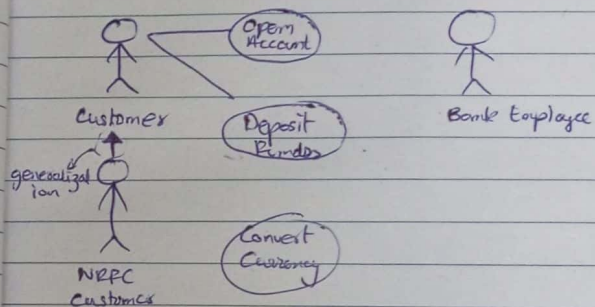 Open
Account
Customer
Bank Employee
Deposit
Funds
generalizat
ion
Convert
Currency
NRFC
Customer